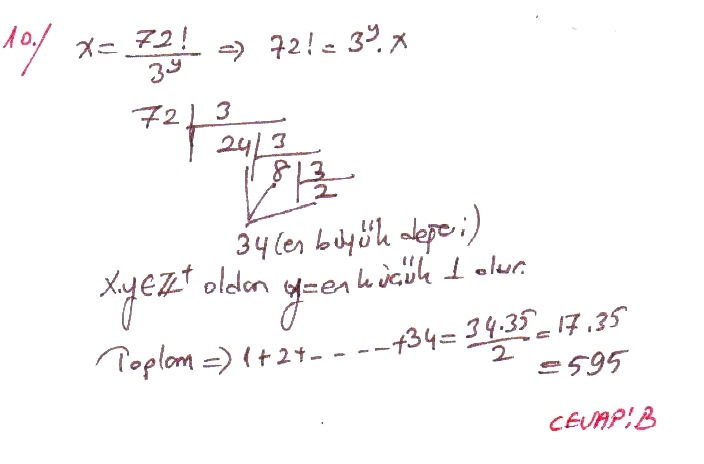 10./ x = 72! / 3^y ⇒ 72! = 3^y . x
72 | 3
24 | 3
8 | 3
2
34 (en büyük değeri)
x,y ∈ Z⁺ oldan y = en küçük 1 olur.
Toplam ⇒ 1+2+-----+34 = 34.35 / 2 = 17.35
= 595
CEVAP: B